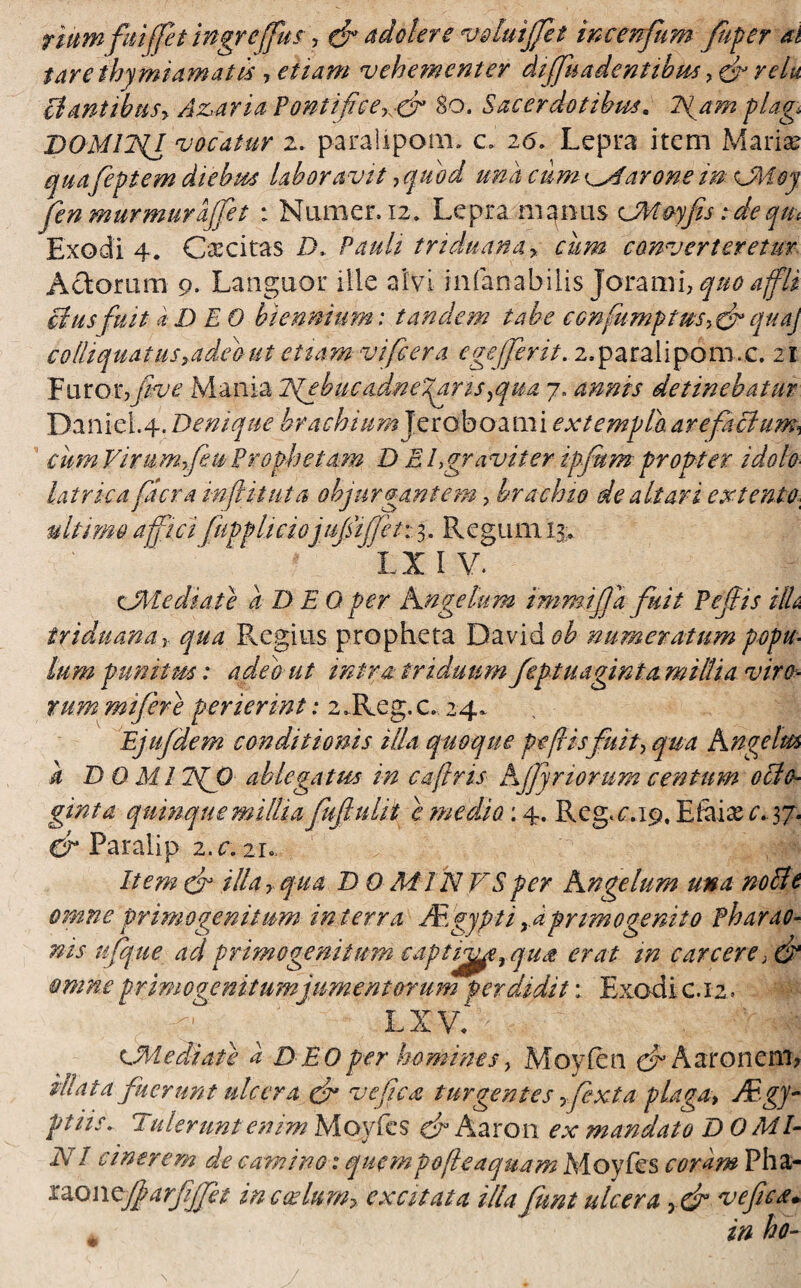 rium fuisset ingressus, & adolere voluisset incensum super al
tare thymiamatis, etiam vehementer dissuadentibus, & relu
ctantibus, Azaria Pontifice, & 80. Sacerdotibus. Nam plag
DOMINI vocatur 2. paralipom. c. 26. Lepra item Mariæ
qua septem diebus laboravit, quod unà cùm Aarone in Moy
sen murmurâsset : Numer. 12. Lepra manus Moysis : de qua
Exodi 4. Cæcitas D. Pauli triduana, cùm converteretur
Actorum 9. Languor ille alvi insanabilis Jorami, quo affli
ctus fuit à DEO biennium: tandem tabe consumptus, & quas
colliquatus, adeò ut etiam viscera egesserit. 2. paralipom. c. 21
Furor, sive Mania Nebucadnezaris, qua 7. annis detinebatur
Daniel. 4. Denique brachium Jeroboami extemplò arefactum,
cùm Virum, seu Prophetam DEI, graviter ipsum propter idolo-
latrica sacra instituta objurgantem, brachio de altari extento,
ultimo affici supplicio jussisset: 3. Regum 13.
LXIV.
Mediatè à DEO per Angelum immissa fuit Pestis illa
triduana, qua Regius propheta David ob numeratum popu-
lum punitus: adeò ut intra triduum septuaginta millia viro-
rum miserè perierint: 2. Reg. c. 24.
Ejusdem conditionis illa quoque pestis fuit, qua Angelus
à DOMINO ablegatus in castris Assyriorum centum octo-
ginta quinque millia sustulit è medio: 4. Reg. c. 19. Esaiæ c. 37.
& Paralip 2. c. 21.
Item & illa, qua DOMINVS per Angelum una nocte
omne primogenitum in terra Ægypti, à primogenito Pharao-
nis usque ad primogenitum captivæ, quæ erat in carcere, &
omne primogenitum jumentorum perdidit: Exodi c. 12.
LXV.
Mediatè à DEO per homines, Moysen & Aaronem,
illata fuerunt ulcera & vesicæ turgentes, sexta plaga, Ægy-
ptiis. Tulerunt enim Moyses & Aaron ex mandato DOMI-
NI cinerem de camino: quem posteaquam Moyses coràm Pha-
raone sparsisset in cœlum, excitata illa sunt ulcera, & vesicæ
in ho-